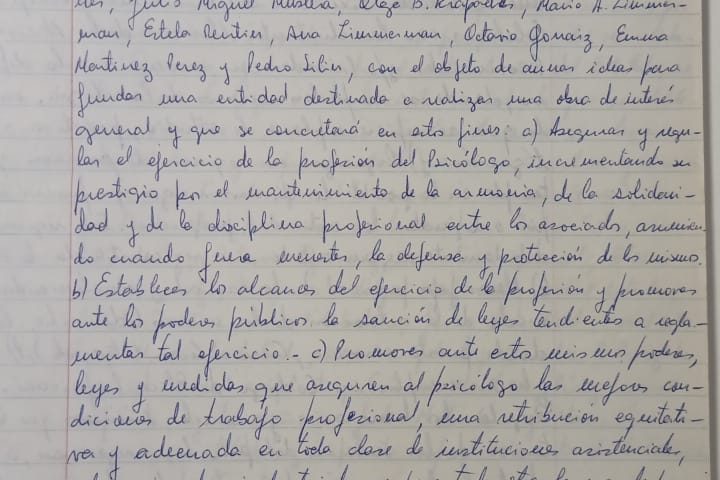 Miguel Mario A. Zimmer-
man, Estela Ana Zimmerman, Octavio Emma
Martinez Perez y Pedro con el objeto de aunar ideas para
fundar una entidad destinada a realizar una obra de interés
general y que se concretará en estos fines: a) Asegurar y regu-
lar el ejercicio de la profesión del Psicólogo, incrementando su
prestigio por el mantenimiento de la armonia, de la solidari-
dad y de la disciplina profesional entre los asociados, asumien-
do cuando fuera menester, la defensa y protección de los mismos.
b) Establecer los alcances del ejercicio de la profesión y promover
ante los poderes públicos la sanción de leyes tendientes a regla-
mentar tal ejercicio.- c) Promover ante estos mismos poderes,
leyes y medidas que aseguren al psicólogo las mejores con-
diciones de trabajo profesional, una retribución equitati-
va y adecuada en toda clase de instituciones asistenciales,